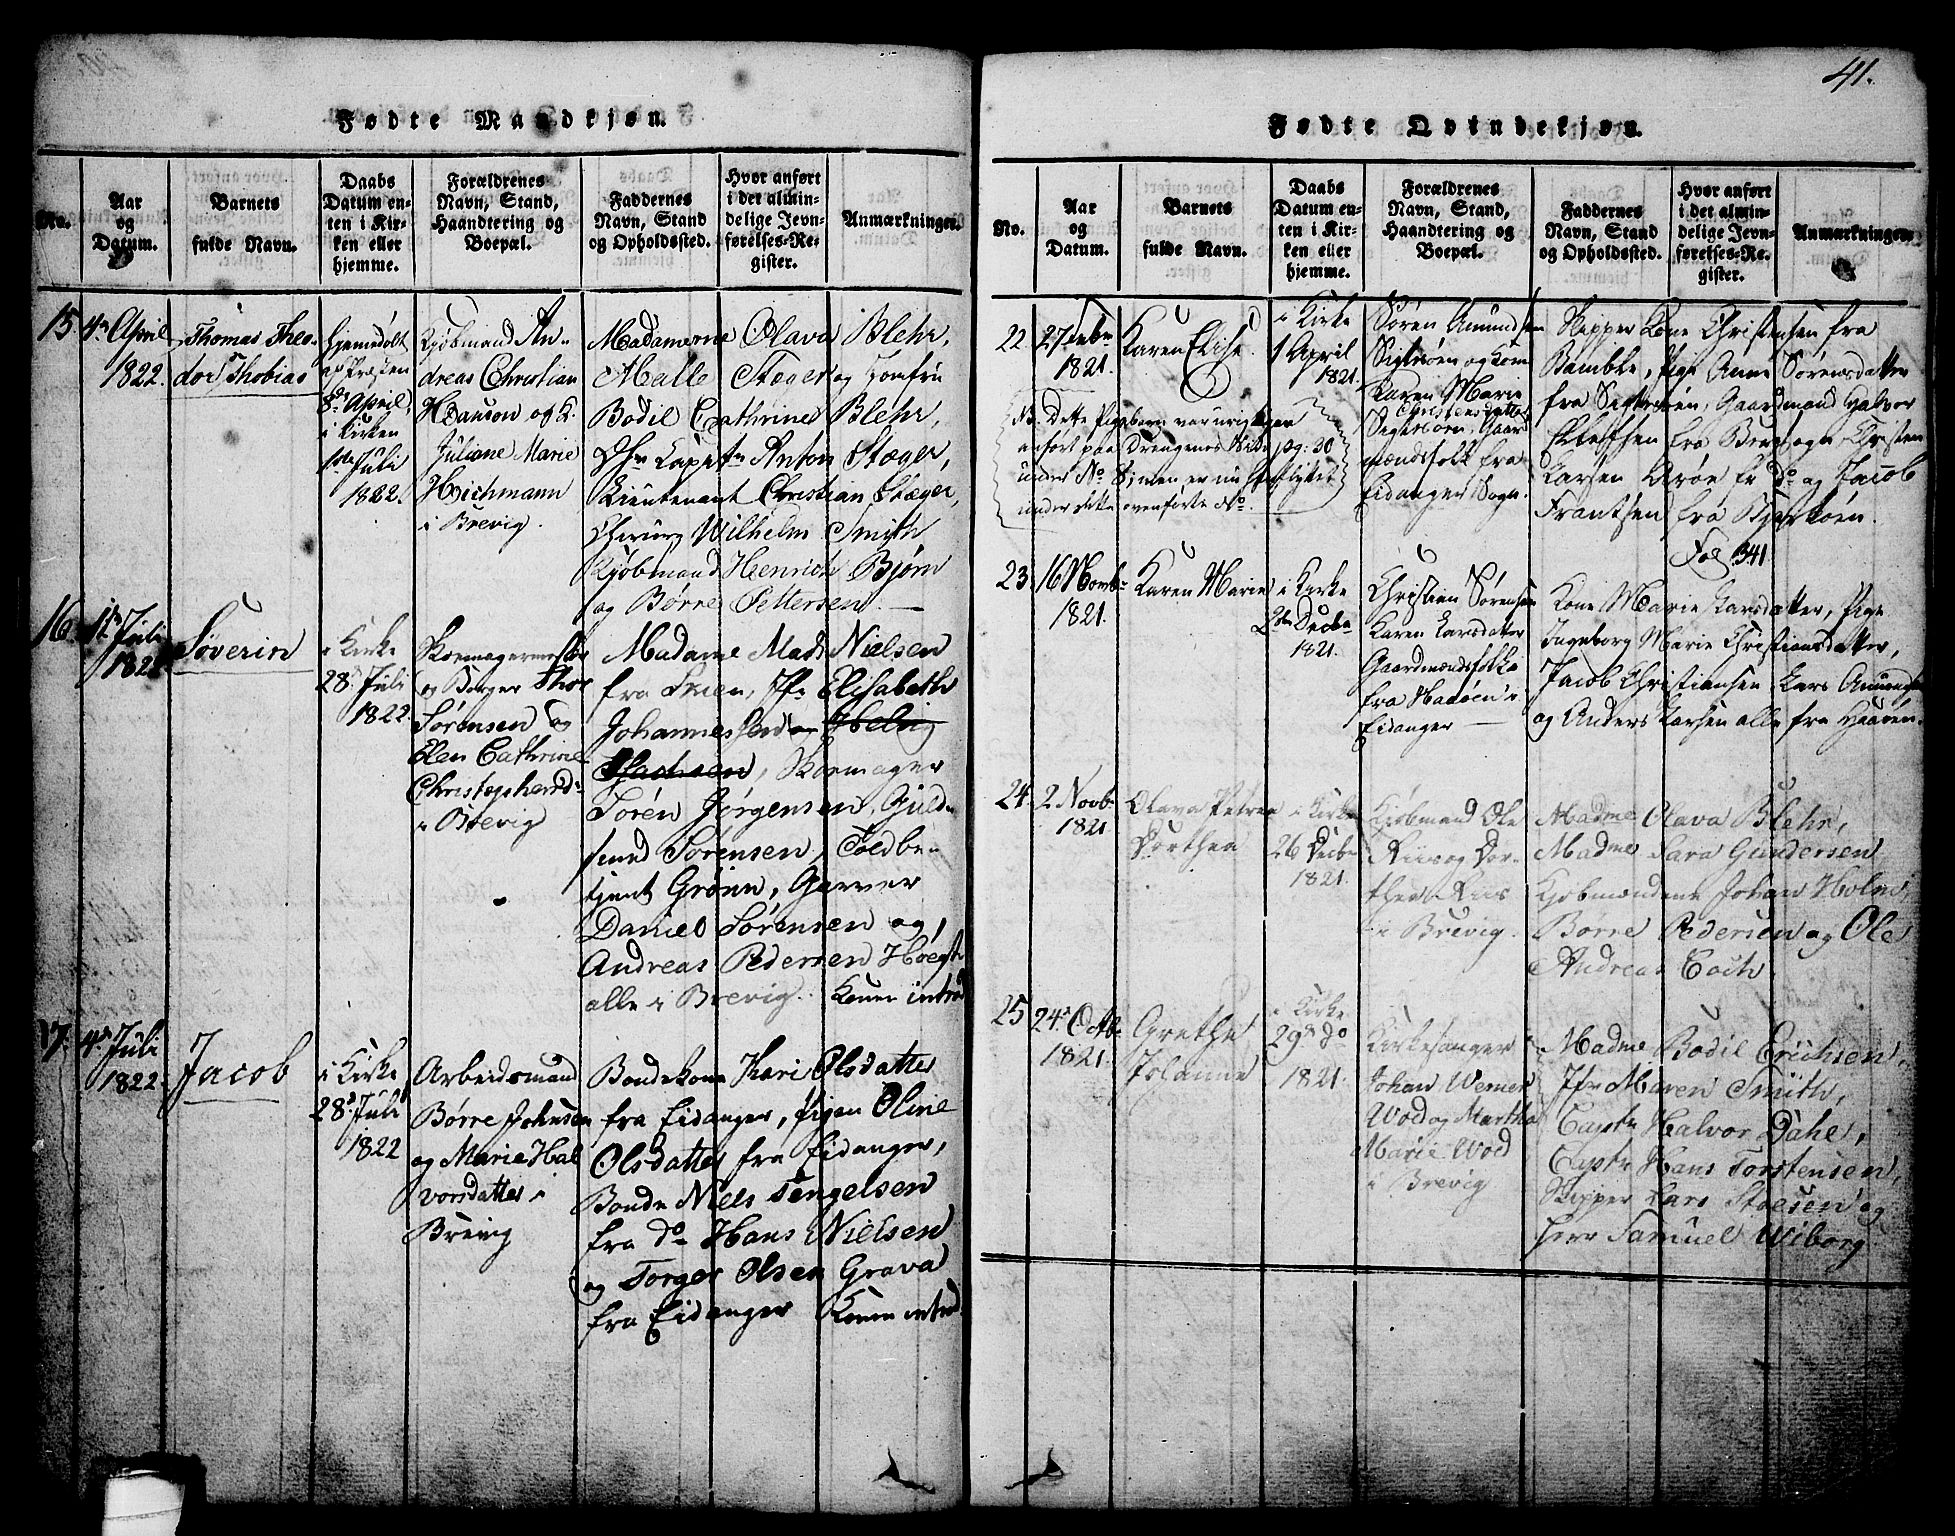 41.
Fødte Mandkjøn.
No.
Aar
og
Datum.
Barnets
fulde Navn.
Daabs
Datum en-
ten i Kir-
ken eller
hjemme.
Forældrenes
Navn, Stand,
Haandtering og
Boepæl.
Faddernes
Navn, Stand
og Opholdssted.
Hvor anført
i det almin-
delige Jevn-
førelses-Re-
gister.
Anmærkninger.
15
4de April
1822.
Thomas Theo-
dor Thobias
hjemmedøbt
af Præsten
8de April,
i Kirken
Juli
1822.
Kjøbmand An-
dreas Christian
og K.
Juliane Marie
Heichmann
i Brevig.
Madamerne Olava Blehr,
Malle Stæger og Jomfru
Bodil Cathrine Blehr,
Hr. Capitn Anton Stæger,
Lieutenant Christian Stæger,
Chirurg Wilhelm Smith
Kjøbmand Henrich Bjørn
og Børre Pettersen.
16
Juli
1822
Søverin
i Kirke
28d Juli
1822.
Skomagermester
og Borger Thor
Sørensen og
Elen Cathrine
Christophersd:
i Brevig
Madame Mads Nielsen
fra Skien, Jfr Elisabeth
Johannes Helvig
Skomager
Søren Jørgensen, Guld-
smed Sørensen, Toldbe-
tjent Grönn, Garver
Daniel Sørensen og,
Andreas Pedersen
alle i Brevig. Konen introd
17.
4de Juli
1822.
Jacob
i Kirke
28d Juli
1822
Arbeidsmand
Børre Johnsen
og Marie Hal
vorsdatter i
Brevig
Bondekone Kari Olsdatter
fra Eidanger, Pigen Oline
Olsdatter fra Eidanger,
Bonde Niels Tengelsen
fra do Hans Nielsen
og Torger Olsen Grava
fra Eidanger Konen introd
Fødte Qvindekjøn.
No.
Aar
og
Datum.
Barnets
fulde Navn.
Daabs
Datum en-
ten i Kir-
ken eller
hjemme.
Forældrenes
Navn, Stand,
Haandtering og
Boepæl.
Faddernes
Navn, Stand
og Opholdssted.
Hvor anført
i det almin-
delige Jevn-
førelses-Re-
gister.
Anmærkninger.
22.
27 Febr
1821.
Karen Elise.
i Kirke
1 April
1821.
NB. Dette Pigebarn var urigtigen
anført paa Drengenes Side, pag: 30
under No men er nu henflyttet
under dette ovenførte No.
Søren Amundsen
Sigtesøen og Kone
Karen Marie
Christensdatter
Gaard
mandsfolk fra
Eidanger Sogn.
Skipper Kone Christensen fra
Bamble, Pige Anne Sørensdatter
fra Gaardmand Halvor
Ellefsen fra Brevig og Christen
Larsen fr do og Jacob
Frantsen fra Bjerkøen.
Fol 341
23
16 Novb
1821.
Karen Marie
i Kirke
2den Decbr
1821.
Christian Sørensen
Karen Larsdatter
Gaardmandsfolk
fra i
Eidanger
Kone Marie Larsdatter, Pige
Ingeborg Marie Christiansdatter,
Jacob Christiansen Lars Amundsen
og Anders Larsen alle fra Haaøen.
24
2 Novb
1821.
Olava Petrea
Dorthea
i Kirke
26 Decbr
1821.
Kjøbmand Ole
Riis og Dor-
thea Riis
i Brevig.
Madme Olava Blehr,
Madme Sara Gundersen
Kjøbmændene Johan Holm,
Børre Pedersen og Ole
Andreas Coch
25
24d Octb
1821.
Grethe
Jolanne
i Kirke
29d do
1821.
Kirkesanger
Johan Werner
Wod og Martha
Marie Wod
i Brevig
Madme Bodil Erichsen,
Jfr Maren Smith,
Captn Halvor Dahl,
Captn Hans Torstensen,
Skipper Lars Stoesen og
Herr Samuel Wiborg